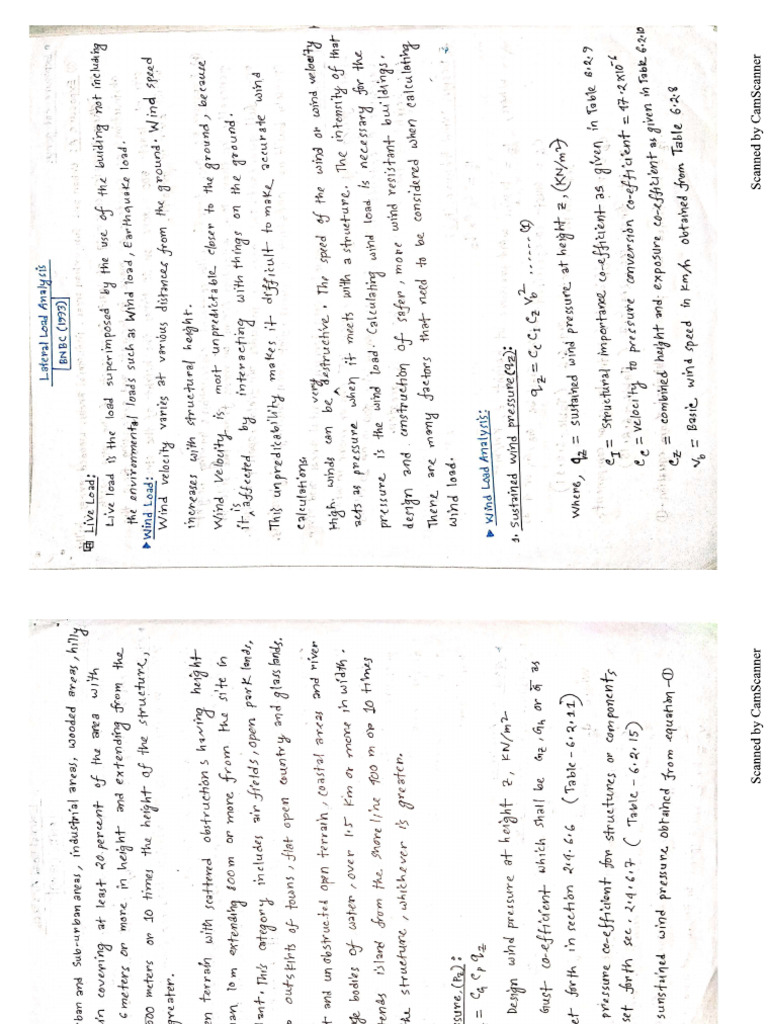 Lateral Load Analysis
BNBC (1993)
Live Load:
Live load is the load superimposed by the use of the buiding not including
the environmental loads such as Wind load, Earthquake load.
Wind Load:
Wind velocity varies at various distances from the ground. Wind speed
increases with structural height.
Wind Velocity is most unpredictable closer to the ground, because
it is affected by interacting with things on the ground.
This unpredicability makes it difficult to make accurate wind
calculations.
High winds can be very destructive. The speed of the wind or wind velocity
acts as pressure when it meets with a structure. The intensity of that
pressure is the wind load. Calculating wind load is necessary for the
design and construction of safer, more wind resistant buildings.
There are many factors that need to be considered when calculating
wind load.
Wind Load Analysis:
1. Sustained wind pressure (qz):
qz = Cc CI Cz Vb² ...... (1)
Where, qz = sustained wind pressure at height z, (KN/m²)
CI = structural importance co-efficient as given in Table 6.2.9
Cc = velocity to pressure conversion co-efficient = 17.2×10⁻⁶
Cz = combined height and exposure co-efficient as given in Table 6.2.10
Vb = Basic wind speed in km/h obtained from Table 6.2.8
Scanned by CamScanner
ban and sub-urban areas, industrial areas, wooded areas, hilly
in covering at least 20 percent of the area with
6 meters or more in height and extending from the
500 meters or 10 times the height of the structure,
greater.
en terrain with scattered obstructions having height
an 10m extending 800m or more from the site in
ant. This category includes air fields, open park lands,
outskirts of towns, flat open country and glasslands.
t and unobstructed open terrain, coastal areas and river
ge bodies of water, over 1.5 km or more in width.
tends island from the shoreline 400 m or 10 times
he structure, whichever is greater.
ssure (Pz):
= CG Cp qz
Design wind pressure at height z, KN/m2
Gust co-efficient which shall be Gz, Gh or G̅ as
et forth in section 2.4.6.6 (Table-6.2.11)
pressure co-efficient for structures or components
set forth sec. 2.4.6.7 (Table-6.2.15)
sunstained wind pressure obtained from equation-①
Scanned by CamScanner